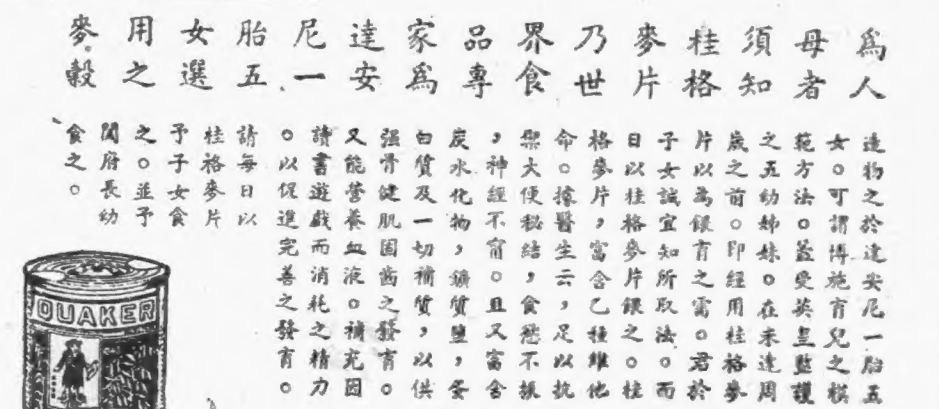 爲人
母者
須知
桂格
麥片
乃世
界食
品專
家爲
達安
尼一
胎五
女選
用之
麥穀
造物之於達安尼一胎五
女。可謂博施育兒之模
範方法。蓋受英皇監護
之五幼姊妹。在未達周
歲之前。即經用桂格麥
片以為餵育之需。君於
子女誠宜知所取法。而
日以桂格麥片餵之。桂
格麥片，富含乙種維他
命。據醫生云，足以抗
禦大便秘結，食慾不振
，神經不甯。且又富含
炭水化物，鑛質鹽，蛋
白質及一切補質，以供
强骨健肌固齒之發育。
又能營養血液。補充因
讀書遊戲而消耗之精力
。以促進完善之發育。
請每日以
桂格麥片
予子女食
之。並予
閤府長幼
食之。
QUAKER